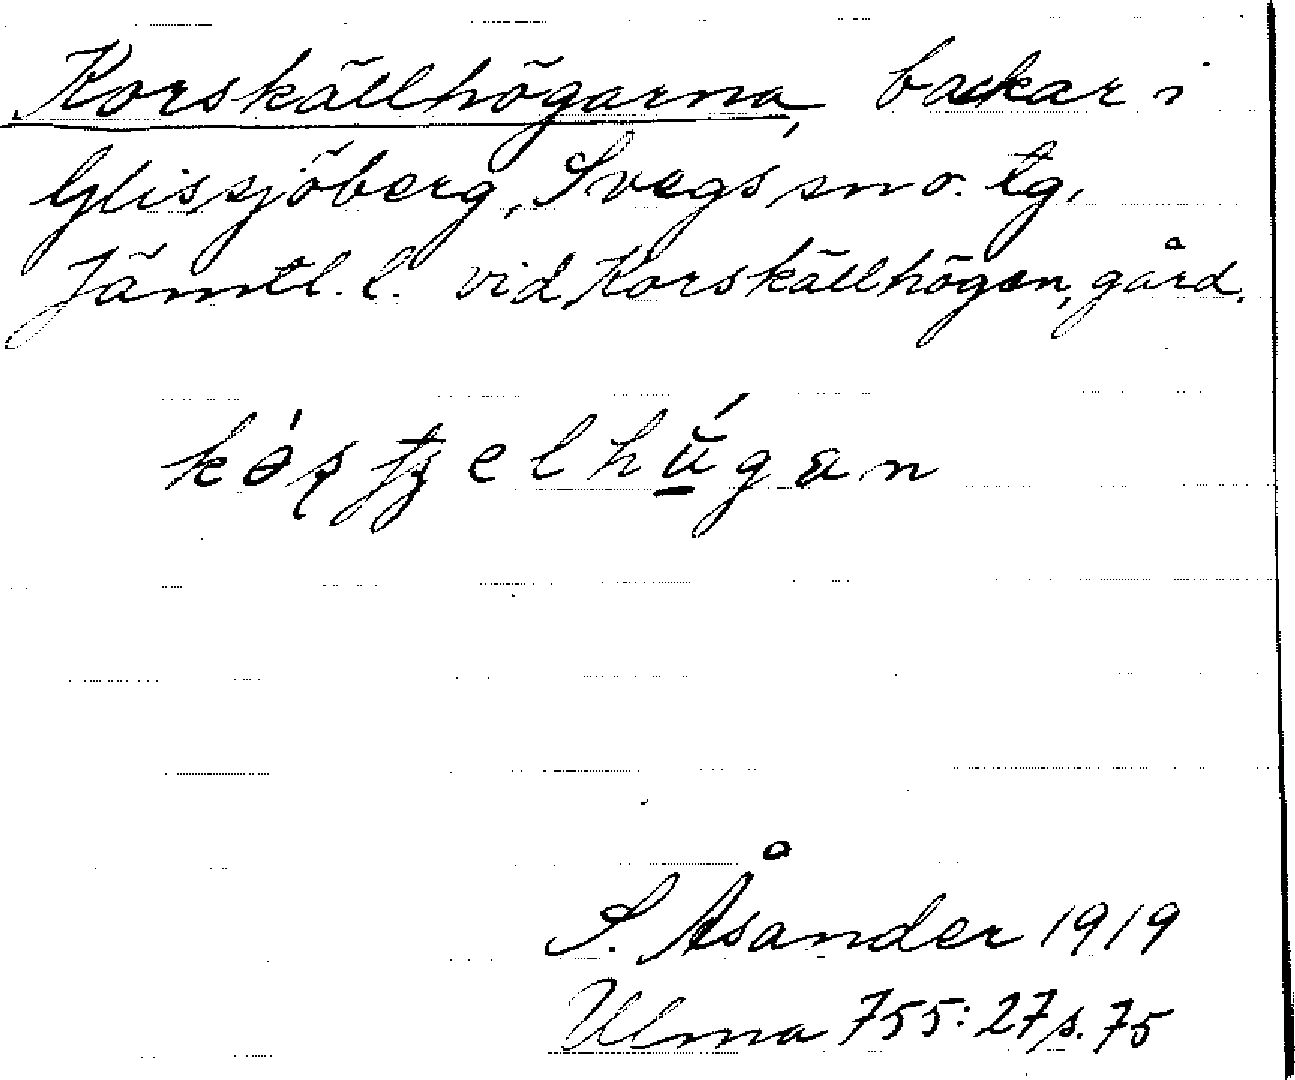 Korskällhögarna, backar i
Glissjöberg, Svegs sn o. tg,
Jämtl. l. vid Korskällhögen, gård.
S. Åsander 1919
Ulma 755:27 s. 75